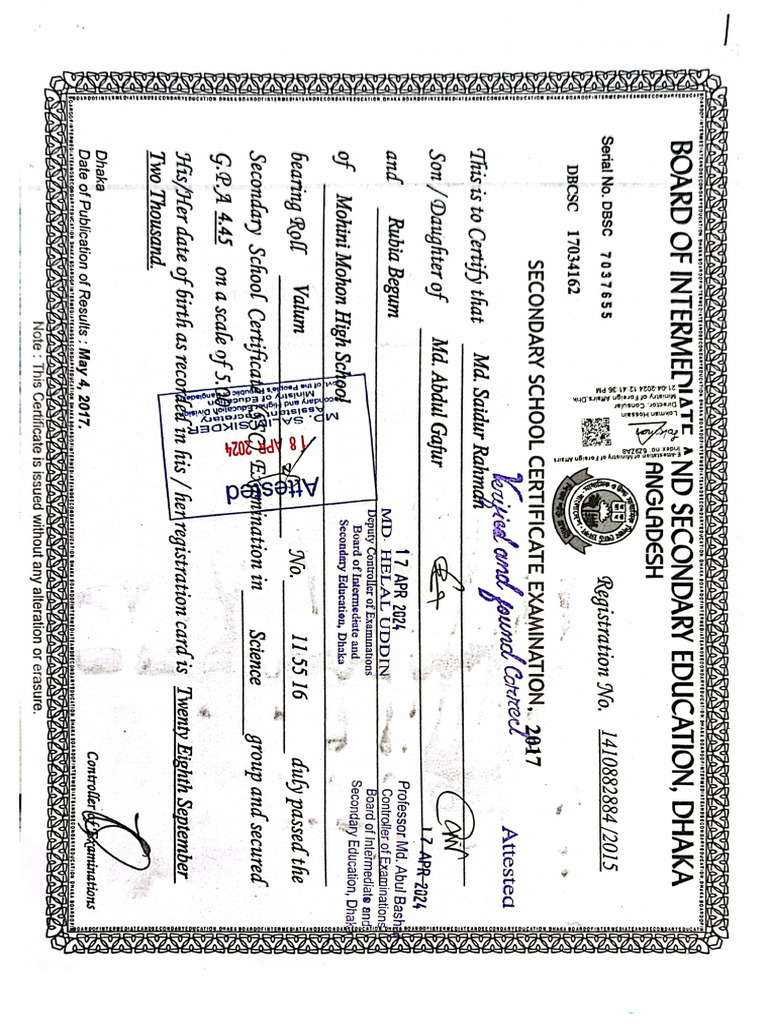 BOARD OF INTERMEDIATE AND SECONDARY EDUCATION, DHAKA
ANGLADESH
Serial No. DBSC 7037655
DBCSC 17034162
Registration No. 1410882884/2015
e-Attestation of Ministry of Foreign Affairs
Index no:
Lokman Hossain
Director, Consular
Ministry of Foreign Affairs, Dhk
21-04-2024 12:41:36 PM
SECONDARY SCHOOL CERTIFICATE EXAMINATION, 2017
Verified and found Correct
Attested
This is to Certify that Md. Saidur Rahman
Son / Daughter of Md. Abdul Gafur
and Rubia Begum
of Mohini Mohon High School
bearing Roll Valum No. 11 55 16 duly passed the
Secondary School Certificate (SSC) Examination in Science group and secured
G.P.A 4.45 on a scale of 5.00
His/Her date of birth as recorded in his / her registration card is Twenty Eighth September
Two Thousand.
17 APR 2024
MD. HELAL UDDIN
Deputy Controller of Examinations
Board of Intermediate and
Secondary Education, Dhaka
17 APR 2024
Professor Md. Abul Bashar
Controller of Examinations
Board of Intermediate and
Secondary Education, Dhaka
Attested
18 APR 2024
MD. SALIM SIKDER
Assistant Secretary
Ministry of Education
Secondary and Higher Education Division
Govt. of the People's Republic of Bangladesh
Dhaka
Date of Publication of Results : May 4, 2017.
Controller of Examinations
Note : This Certificate is issued without any alteration or erasure.